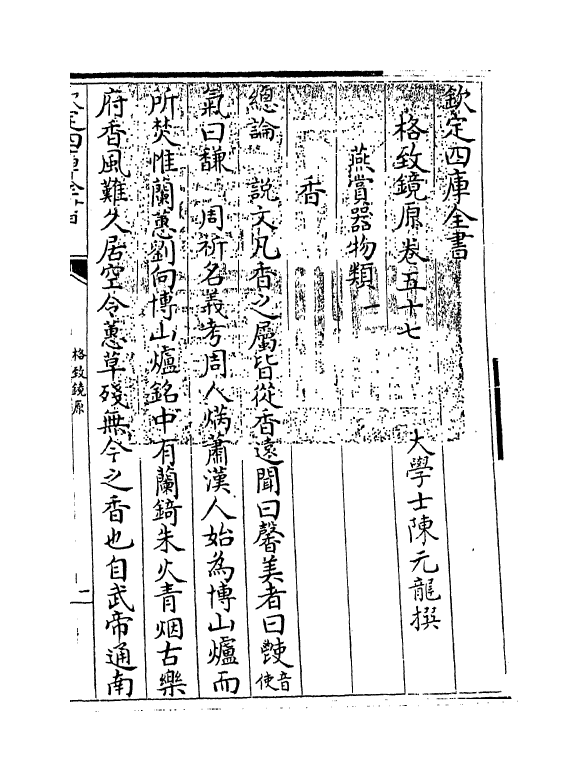 欽定四庫全書
格致鏡原卷五十七
大學士陳元龍撰
燕賞器物類一
香
總論 說文凡香之屬皆從香遠聞曰馨美者曰䭲音使
氣曰馦 周祈名義考周人焫蕭漢人始為博山爐而
所焚惟蘭蕙劉向博山爐銘中有蘭錡朱火青烟古樂
府香風難久居空令蕙草殘無今之香也自武帝通南
格致鏡原